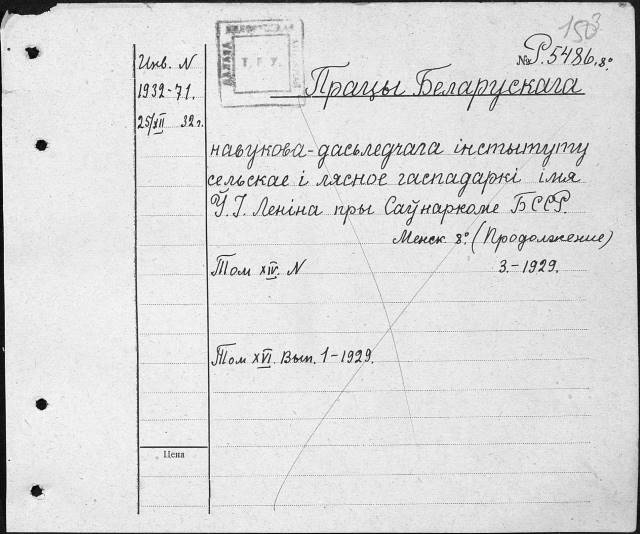 150³
№ Р. 5486. 8°
Инв. N
1932-71.
25/XII 32 г.
Т. Г. У.
Працы Беларускага
навукова-дасьледчага інстытуту
сельскае і лясное гаспадаркі імя
Ў. І. Леніна пры Саўнаркоме БССР.
Менск 8° (Продолжение)
Том XIV. N 3.-1929.
Том XVI. Вып. 1-1929.
Цена